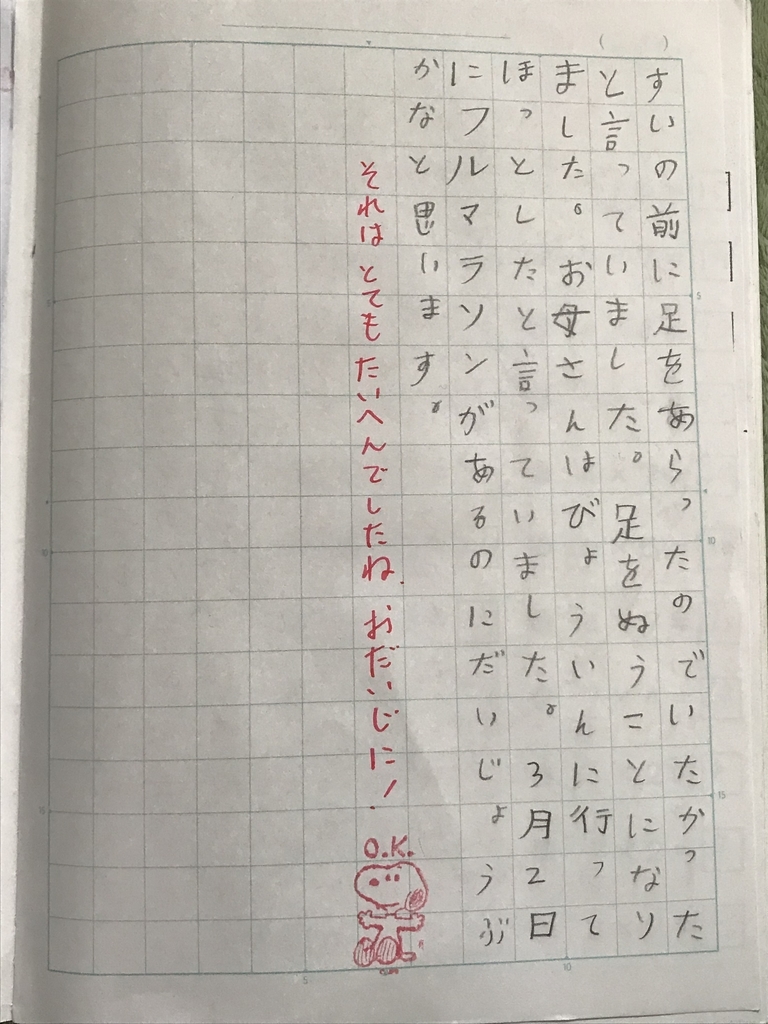 すいの前に足をあらったのでいたかった
と言っていました。足をぬうことになり
ました。お母さんはびょういんに行って
ほっとしたと言っていました。3月2日
にフルマラソンがあるのにだいじょうぶ
かなと思います。
それは とても たいへんでしたね. おだいじに!
O.K.